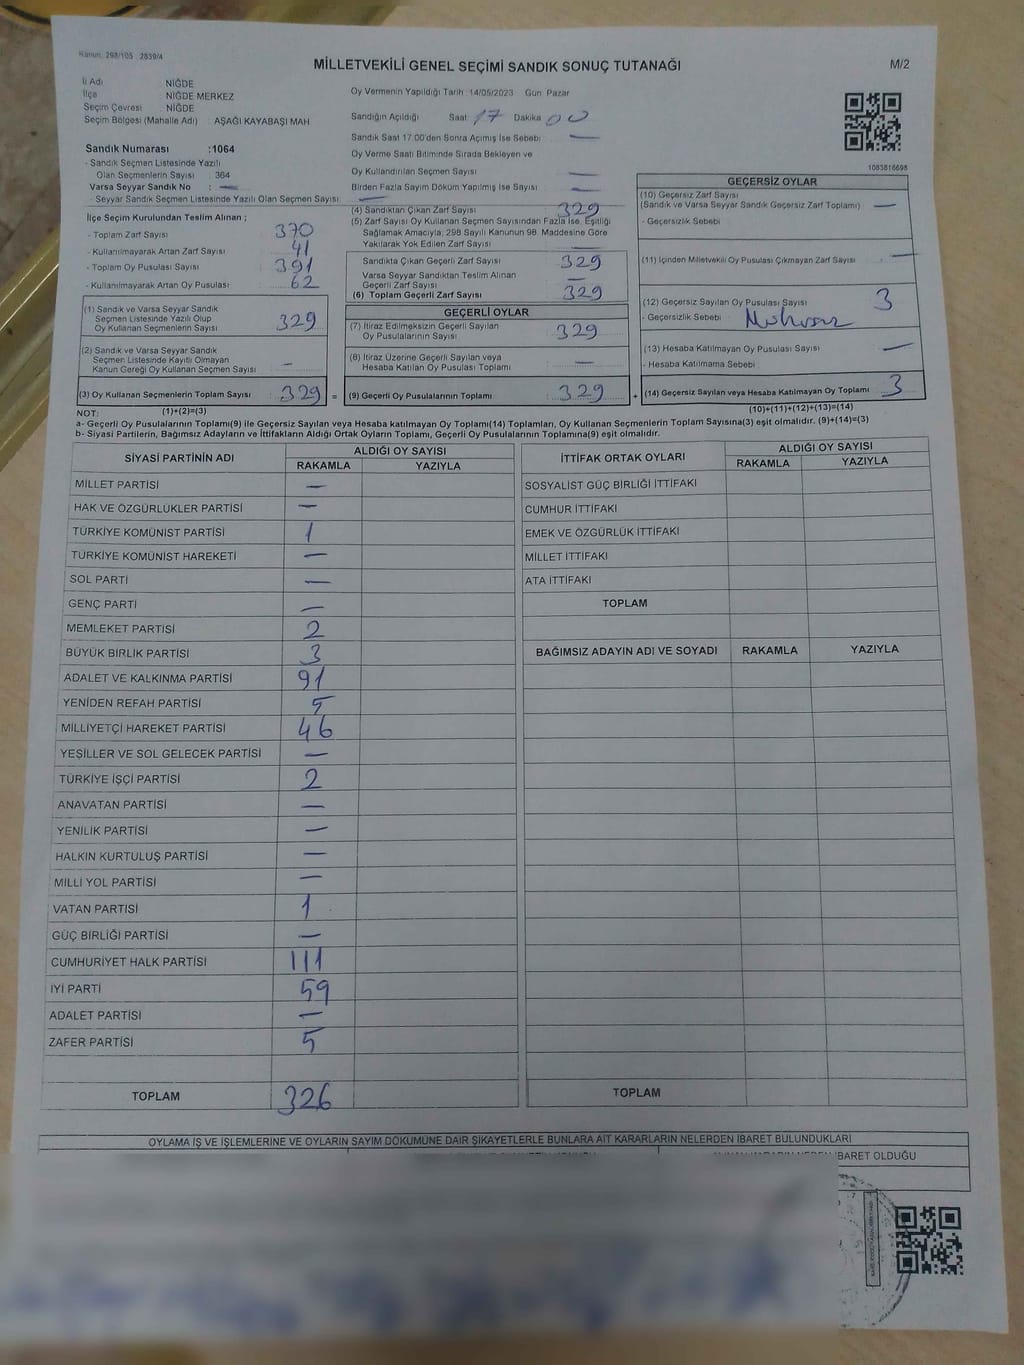 Kanun: 298/105 2839/4
MİLLETVEKİLİ GENEL SEÇİMİ SANDIK SONUÇ TUTANAĞI
M/2
İl Adı NİĞDE
İlçe NİĞDE MERKEZ
Seçim Çevresi : NİĞDE
Seçim Bölgesi (Mahalle Adı) : AŞAĞI KAYABAŞI MAH
Sandık Numarası :1064
- Sandık Seçmen Listesinde Yazılı
Olan Seçmenlerin Sayısı : 364
Varsa Seyyar Sandık No : —
- Seyyar Sandık Seçmen Listesinde Yazılı Olan Seçmen Sayısı: —
İlçe Seçim Kurulundan Teslim Alınan ;
- Toplam Zarf Sayısı 370
- Kullanılmayarak Artan Zarf Sayısı 41
- Toplam Oy Pusulası Sayısı 391
- Kullanılmayarak Artan Oy Pusulası 62
(1) Sandık ve Varsa Seyyar Sandık
Seçmen Listesinde Yazılı Olup
Oy Kullanan Seçmenlerin Sayısı 329
(2) Sandık ve Varsa Seyyar Sandık
Seçmen Listesinde Kayıtlı Olmayan
Kanun Gereği Oy Kullanan Seçmen Sayısı : —
(3) Oy Kullanan Seçmenlerin Toplam Sayısı : 329 =
Oy Vermenin Yapıldığı Tarih :14/05/2023 Gün: Pazar
Sandığın Açıldığı Saat 17 Dakika 00
Sandık Saat 17:00'den Sonra Açılmış İse Sebebi: —
Oy Verme Saati Bitiminde Sırada Bekleyen ve
Oy Kullandırılan Seçmen Sayısı —
Birden Fazla Sayım Döküm Yapılmış İse Sayısı —
(4) Sandıktan Çıkan Zarf Sayısı 329
(5) Zarf Sayısı Oy Kullanan Seçmen Sayısından Fazla İse, Eşitliği
Sağlamak Amacıyla, 298 Sayılı Kanunun 98. Maddesine Göre
Yakılarak Yok Edilen Zarf Sayısı —
Sandıkta Çıkan Geçerli Zarf Sayısı 329
Varsa Seyyar Sandıktan Teslim Alınan
Geçerli Zarf Sayısı —
(6) Toplam Geçerli Zarf Sayısı 329
GEÇERLİ OYLAR
(7) İtiraz Edilmeksizin Geçerli Sayılan
Oy Pusulalarının Sayısı 329
(8) İtiraz Üzerine Geçerli Sayılan veya
Hesaba Katılan Oy Pusulası Toplamı —
(9) Geçerli Oy Pusulalarının Toplamı : 329 +
1083816698
GEÇERSİZ OYLAR
(10) Geçersiz Zarf Sayısı
(Sandık ve Varsa Seyyar Sandık Geçersiz Zarf Toplamı) —
- Geçersizlik Sebebi
(11) İçinden Milletvekili Oy Pusulası Çıkmayan Zarf Sayısı —
(12) Geçersiz Sayılan Oy Pusulası Sayısı 3
- Geçersizlik Sebebi
(13) Hesaba Katılmayan Oy Pusulası Sayısı —
- Hesaba Katılmama Sebebi
(14) Geçersiz Sayılan veya Hesaba Katılmayan Oy Toplamı 3
NOT: (1)+(2)=(3) (10)+(11)+(12)+(13)=(14)
a- Geçerli Oy Pusulalarının Toplamı(9) ile Geçersiz Sayılan veya Hesaba Katılmayan Oy Toplamı(14) Toplamları, Oy Kullanan Seçmenlerin Toplam Sayısına(3) eşit olmalıdır. (9)+(14)=(3)
b- Siyasi Partilerin, Bağımsız Adayların ve İttifakların Aldığı Ortak Oyların Toplamı, Geçerli Oy Pusulalarının Toplamına(9) eşit olmalıdır.
SİYASİ PARTİNİN ADI ALDIĞI OY SAYISI
RAKAMLA YAZIYLA
MİLLET PARTİSİ —
HAK VE ÖZGÜRLÜKLER PARTİSİ —
TÜRKİYE KOMÜNİST PARTİSİ 1
TÜRKİYE KOMÜNİST HAREKETİ —
SOL PARTİ —
GENÇ PARTİ —
MEMLEKET PARTİSİ 2
BÜYÜK BİRLİK PARTİSİ 3
ADALET VE KALKINMA PARTİSİ 91
YENİDEN REFAH PARTİSİ 5
MİLLİYETÇİ HAREKET PARTİSİ 46
YEŞİLLER VE SOL GELECEK PARTİSİ —
TÜRKİYE İŞÇİ PARTİSİ 2
ANAVATAN PARTİSİ —
YENİLİK PARTİSİ —
HALKIN KURTULUŞ PARTİSİ —
MİLLİ YOL PARTİSİ —
VATAN PARTİSİ 1
GÜÇ BİRLİĞİ PARTİSİ —
CUMHURİYET HALK PARTİSİ 111
İYİ PARTİ 59
ADALET PARTİSİ —
ZAFER PARTİSİ 5
TOPLAM 326
İTTİFAK ORTAK OYLARI ALDIĞI OY SAYISI
RAKAMLA YAZIYLA
SOSYALİST GÜÇ BİRLİĞİ İTTİFAKI
CUMHUR İTTİFAKI
EMEK VE ÖZGÜRLÜK İTTİFAKI
MİLLET İTTİFAKI
ATA İTTİFAKI
TOPLAM
BAĞIMSIZ ADAYIN ADI VE SOYADI RAKAMLA YAZIYLA
TOPLAM
OYLAMA İŞ VE İŞLEMLERİNE VE OYLARIN SAYIM DÖKÜMÜNE DAİR ŞİKAYETLERLE BUNLARA AİT KARARLARIN NELERDEN İBARET BULUNDUKLARI
İBARET OLDUĞU